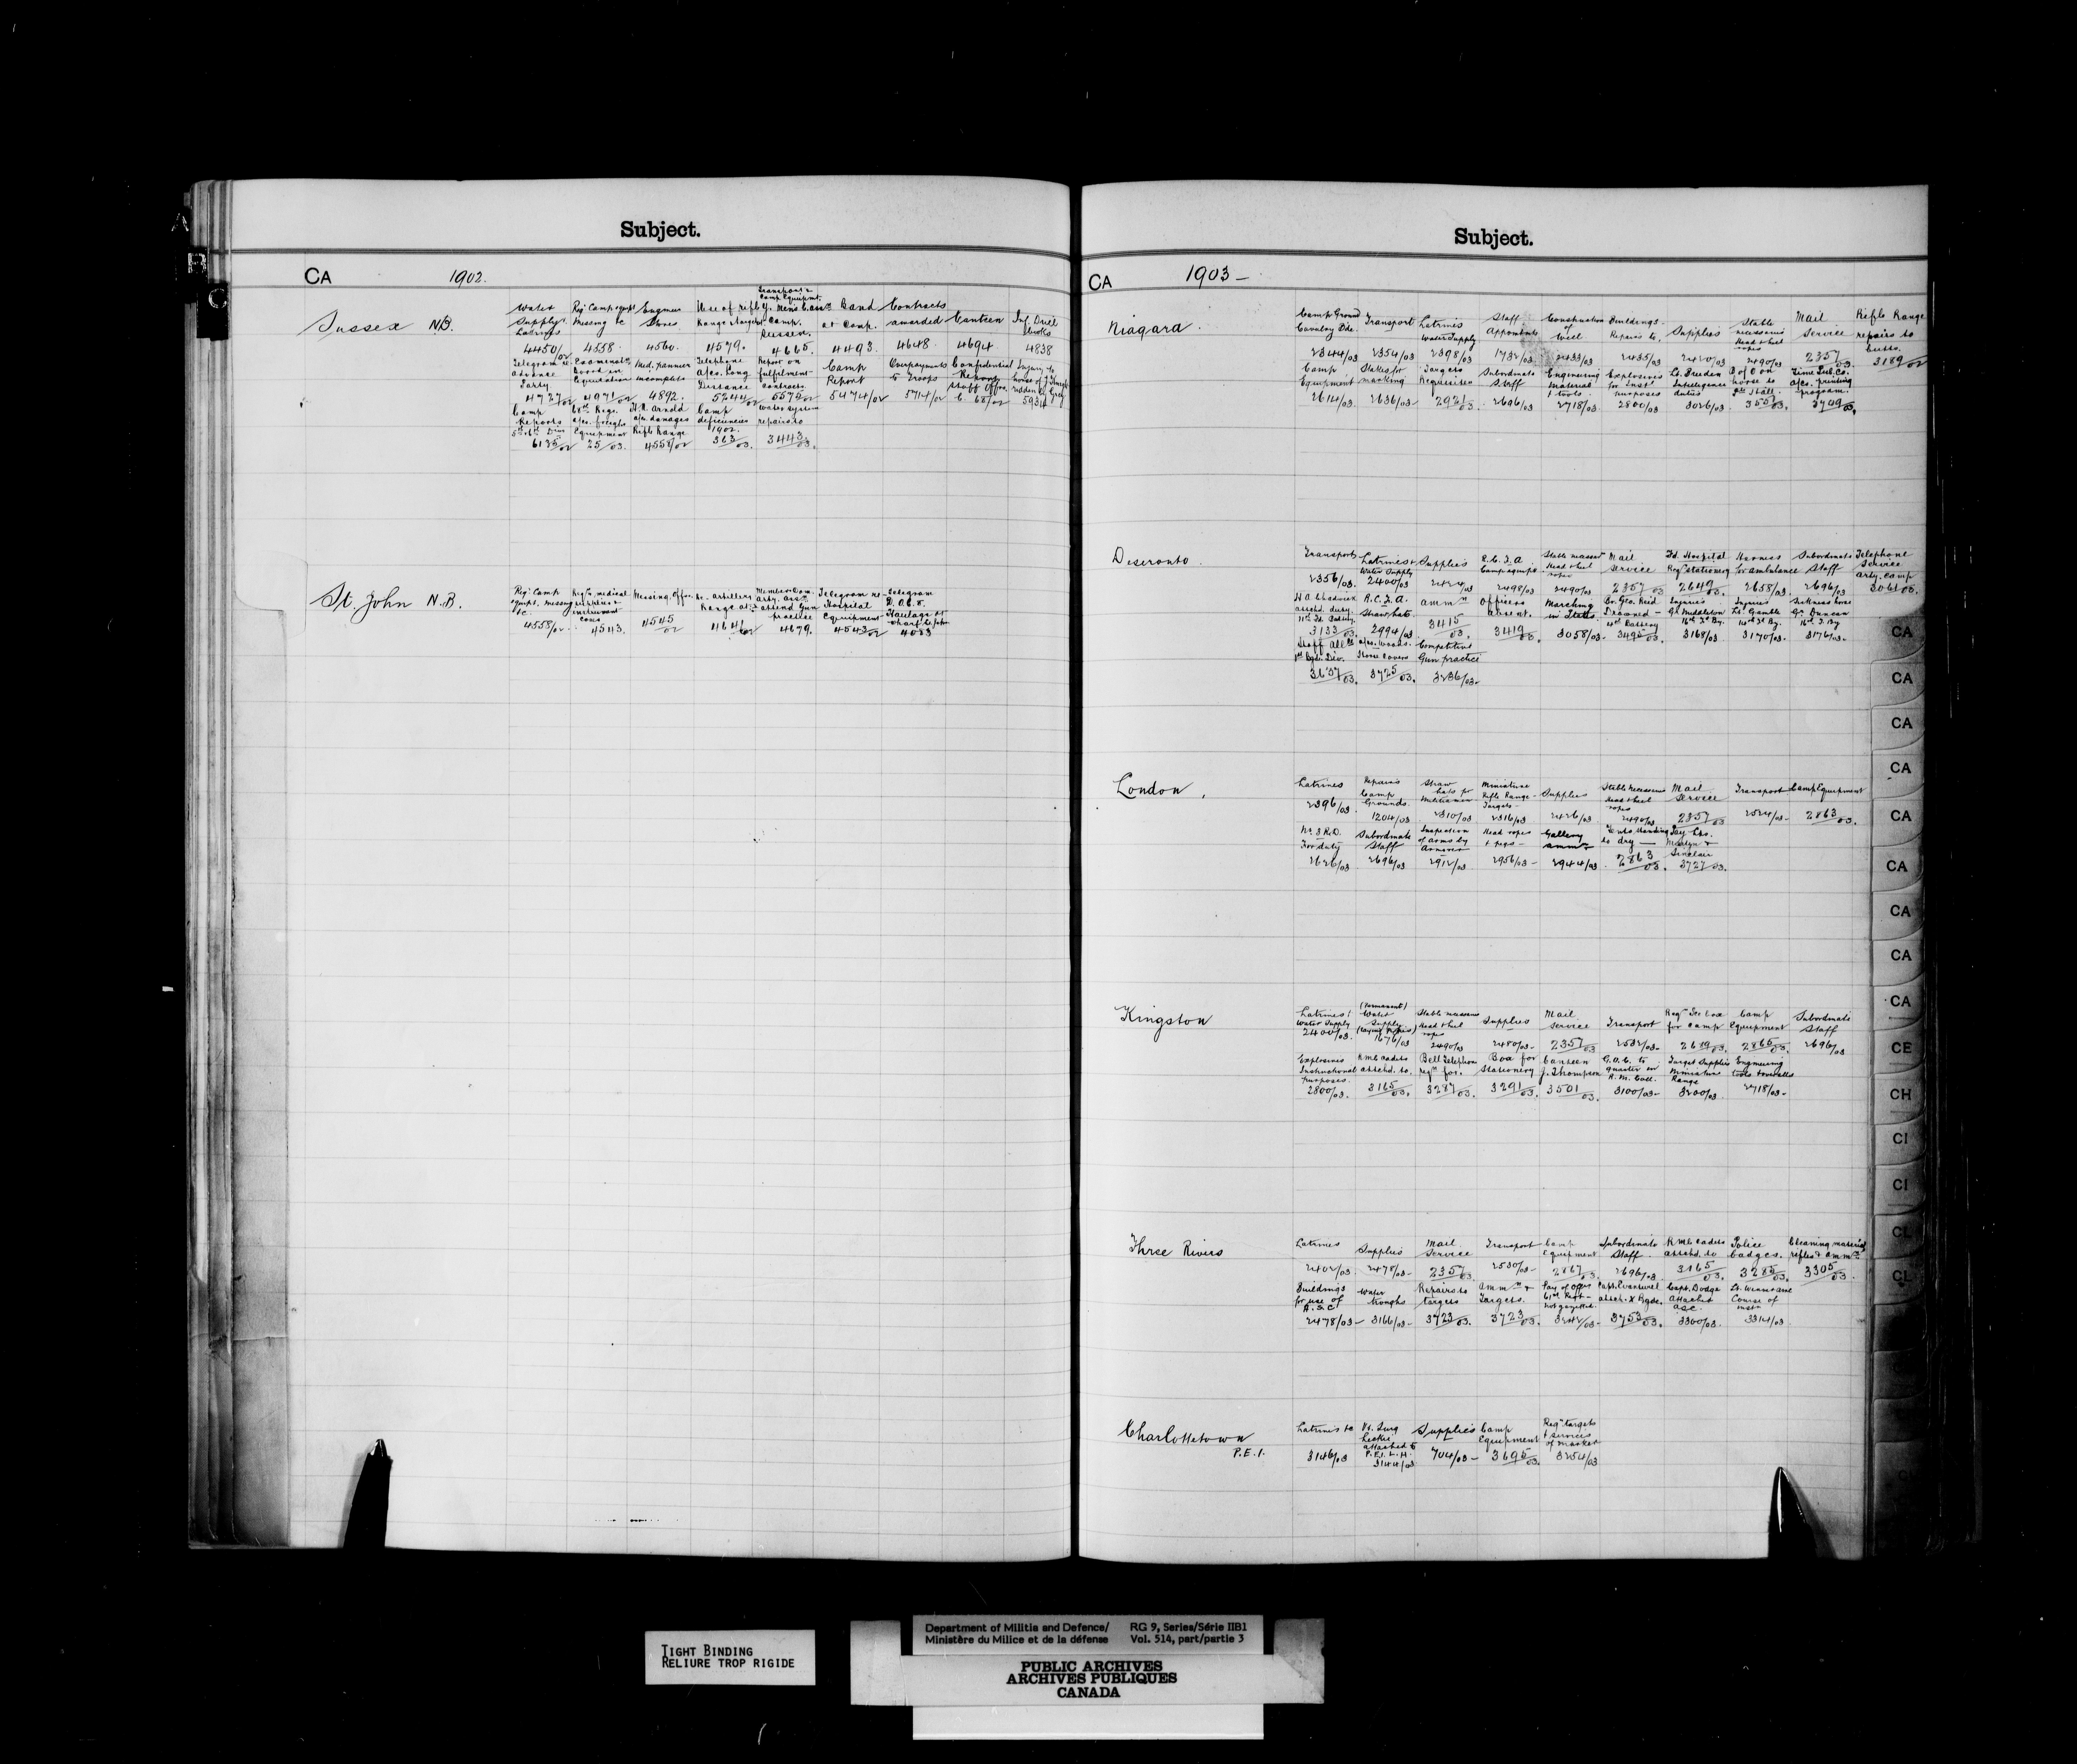 Subject.
CA 1902.
Sussex N.B.
Water Supply & Latrines 4450/02
Req. Camp equipt Missing &c 4558
Engineer Stores 4560
Use of rifle Range & targets 4579.
Transport & Camp Equipment
Y. Men's C. assn Camp. Sussex. 4665.
Band at Camp. 4493.
Contracts awarded 4648
Canteen 4694
Inf. Drill Books 4838
Telegram re. advance Party. 4727/02
Examination Board in Equitation 4971/02
Med. pannier incomplete 4892.
Telephone a/cs. Long Distance 5244/02
Report on fulfilment contracts 5572/02
Camp Report 5474/02
Overpayments to Troops 5714/02
Confidential Reports Staff Offrs. C. 68/02
Injury to horse of 59314
Camp Reports 5th & 6th Divs 6135/02
61st Regt. a/cs. freight Equipment 25/03.
H.R. Arnold a/c. damages Rifle Range 4558/02
Camp deficiencies 1902. 363/03.
Water system repairs to 3443/03.
St. John N.B.
Req. Camp equipt. missing &c. 4558/02
4543.
Missing. Offrs. 4545/02
Artillery Range at 4641/02
attend Gun practice 4679.
Telegram re Hospital Equipment 4543/02
Telegram Haulage at wharf St. John 4083
Subject.
CA 1903-
Niagara.
Camp Ground Cavalry Bde. 2344/03
Transport 2354/03
Latrines Water Supply 2398/03
Staff Appointmts 1732/03
Construction of Well 2433/03
Buildings Repairs to. 2435/03
Supplies 2420/03
Stable necessaries Head & heel ropes 2490/03
Mail Service 2357/03.
Rifle Range repairs to butts. 3189/02
Camp Equipment 2614/03.
Stakes for marking 2636/03
Targets Requisites 2921/03.
Subordinate Staff 2696/03
Engineering Material & tools. 2718/03.
Explosives for Instl purposes 2800/03
Lt. Burden Intelligence duties 3026/03
B of O on horse to 2nd Hall. 3557/03.
Time Pub. Co. a/cs. printing program. 3749/03.
Deseronto.
Transport 2356/03.
Latrines & Water Supply 2400/03
Supplies 2424/03
R.C.F.A. Camp equipt. 2498/03
Stable necessy Head & heel ropes 2490/03
Mail Service 2357/03
Fd. Hospital Reqn stationery 2649/03.
Harness for ambulance 2658/03
Subordinate Staff 2696/03
Telephone Service arty. Camp 3061/03.
H.A. Chadwick attchd. duty. 11th Fd. Battery. 3133/03.
R.C.F.A. Straw hats 2994/03
ammn 3415/03.
Officers Absent. 3419/03.
Marching in State 3058/03-
Br. Geo. Reid Drowned - 4th Battery 3495/03.
Injuries Gr. Middleton 16th Fd. By. 3168/03.
Injuries Lt. Gamble 14th Fd By. 3170/03-
Sickness horse Gr. Duncan 16th F. By 3176/03-
Staff allce 1st Bgde. Div. 3637/03.
a/cs. Woods. Horse Covers 3725/03.
Competitive Gun practice 3236/03-
London,
Latrines 2396/03.
Repairs Camp Grounds. 1204/03
Straw hats for Militiamen 2310/03
Miniature Rifle Range - Targets - 2316/03
Supplies 2426/03
Stable necessaries Head & heel ropes 2490/03
Mail Service 2357/03
Transport 2524/03-
Camp Equipment 2863/03.
No. 3 R.D. For duty 2626/03
Subordinate Staff 2696/03
Inspection of arms by Armourer 2912/03
Head ropes & pegs - 2956/03-
Gallery ammn 2944/03
Tents. Hanking to dry - 2863/03.
Pay Lts. Sinclair 3727/03.
Kingston
Latrines & Water Supply 2400/03.
(Permanent) Water Supply (Laying Pipes) 1676/03
Stable necessaries Head & heel ropes 2490/03
Supplies 2480/03-
Mail Service 2357/03
Transport 2532/03-
Reqn Ice box for Camp 2689/03.
Camp Equipment 2865/03.
Subordinate Staff 2696/03
Explosives Instructional Purposes. 2800/03.
RMC Cadets attchd. to. 3165/03.
Bell Telephone reqn for. 3287/03.
Box for Stationery 3291/03.
Canteen J. Thompson 3501/03.
G.O.C. to quarter in R.M. Coll. 3100/03-
Target Supplies Miniature Range 3200/03.
Engineering tools & 2718/03-
Three Rivers
Latrines 2402/03
Supplies 2478/03-
Mail Service 2357/03.
Transport 2530/03-
Camp Equipment 2867/03.
Subordinate Staff. 2696/03
RMC Cadets attchd. to 3165/03.
Police badges. 3285/03.
Cleaning material rifles & ammn 3305/03.
Buildings for use of A.S.C. 2478/03-
Water troughs 3166/03-
Repairs to targets 3723/03.
ammn & Targets. 3723/03.
Pay of Offrs 61st Regt - not gazetted. 3242/03-
attch. X Bgde. 3753/03.
Capt. Dodge attached A.S.C. 3300/03.
Course of instn 3314/03
Charlottetown P.E.I.
Latrines &c 3146/03
attached to P.E.I. L.H. 3144/03
Supplies 704/03-
Camp Equipment 3695/03.
Reqn targets & services of marker 3254/03
A
B
C
CA
CA
CA
CA
CA
CA
CA
CA
CA
CE
CH
CI
CI
CL
CL
TIGHT BINDING
RELIURE TROP RIGIDE
Department of Militia and Defence/ RG 9, Series/Série IIB1
Ministère du Milice et de la défense Vol. 514, part/partie 3
PUBLIC ARCHIVES
ARCHIVES PUBLIQUES
CANADA